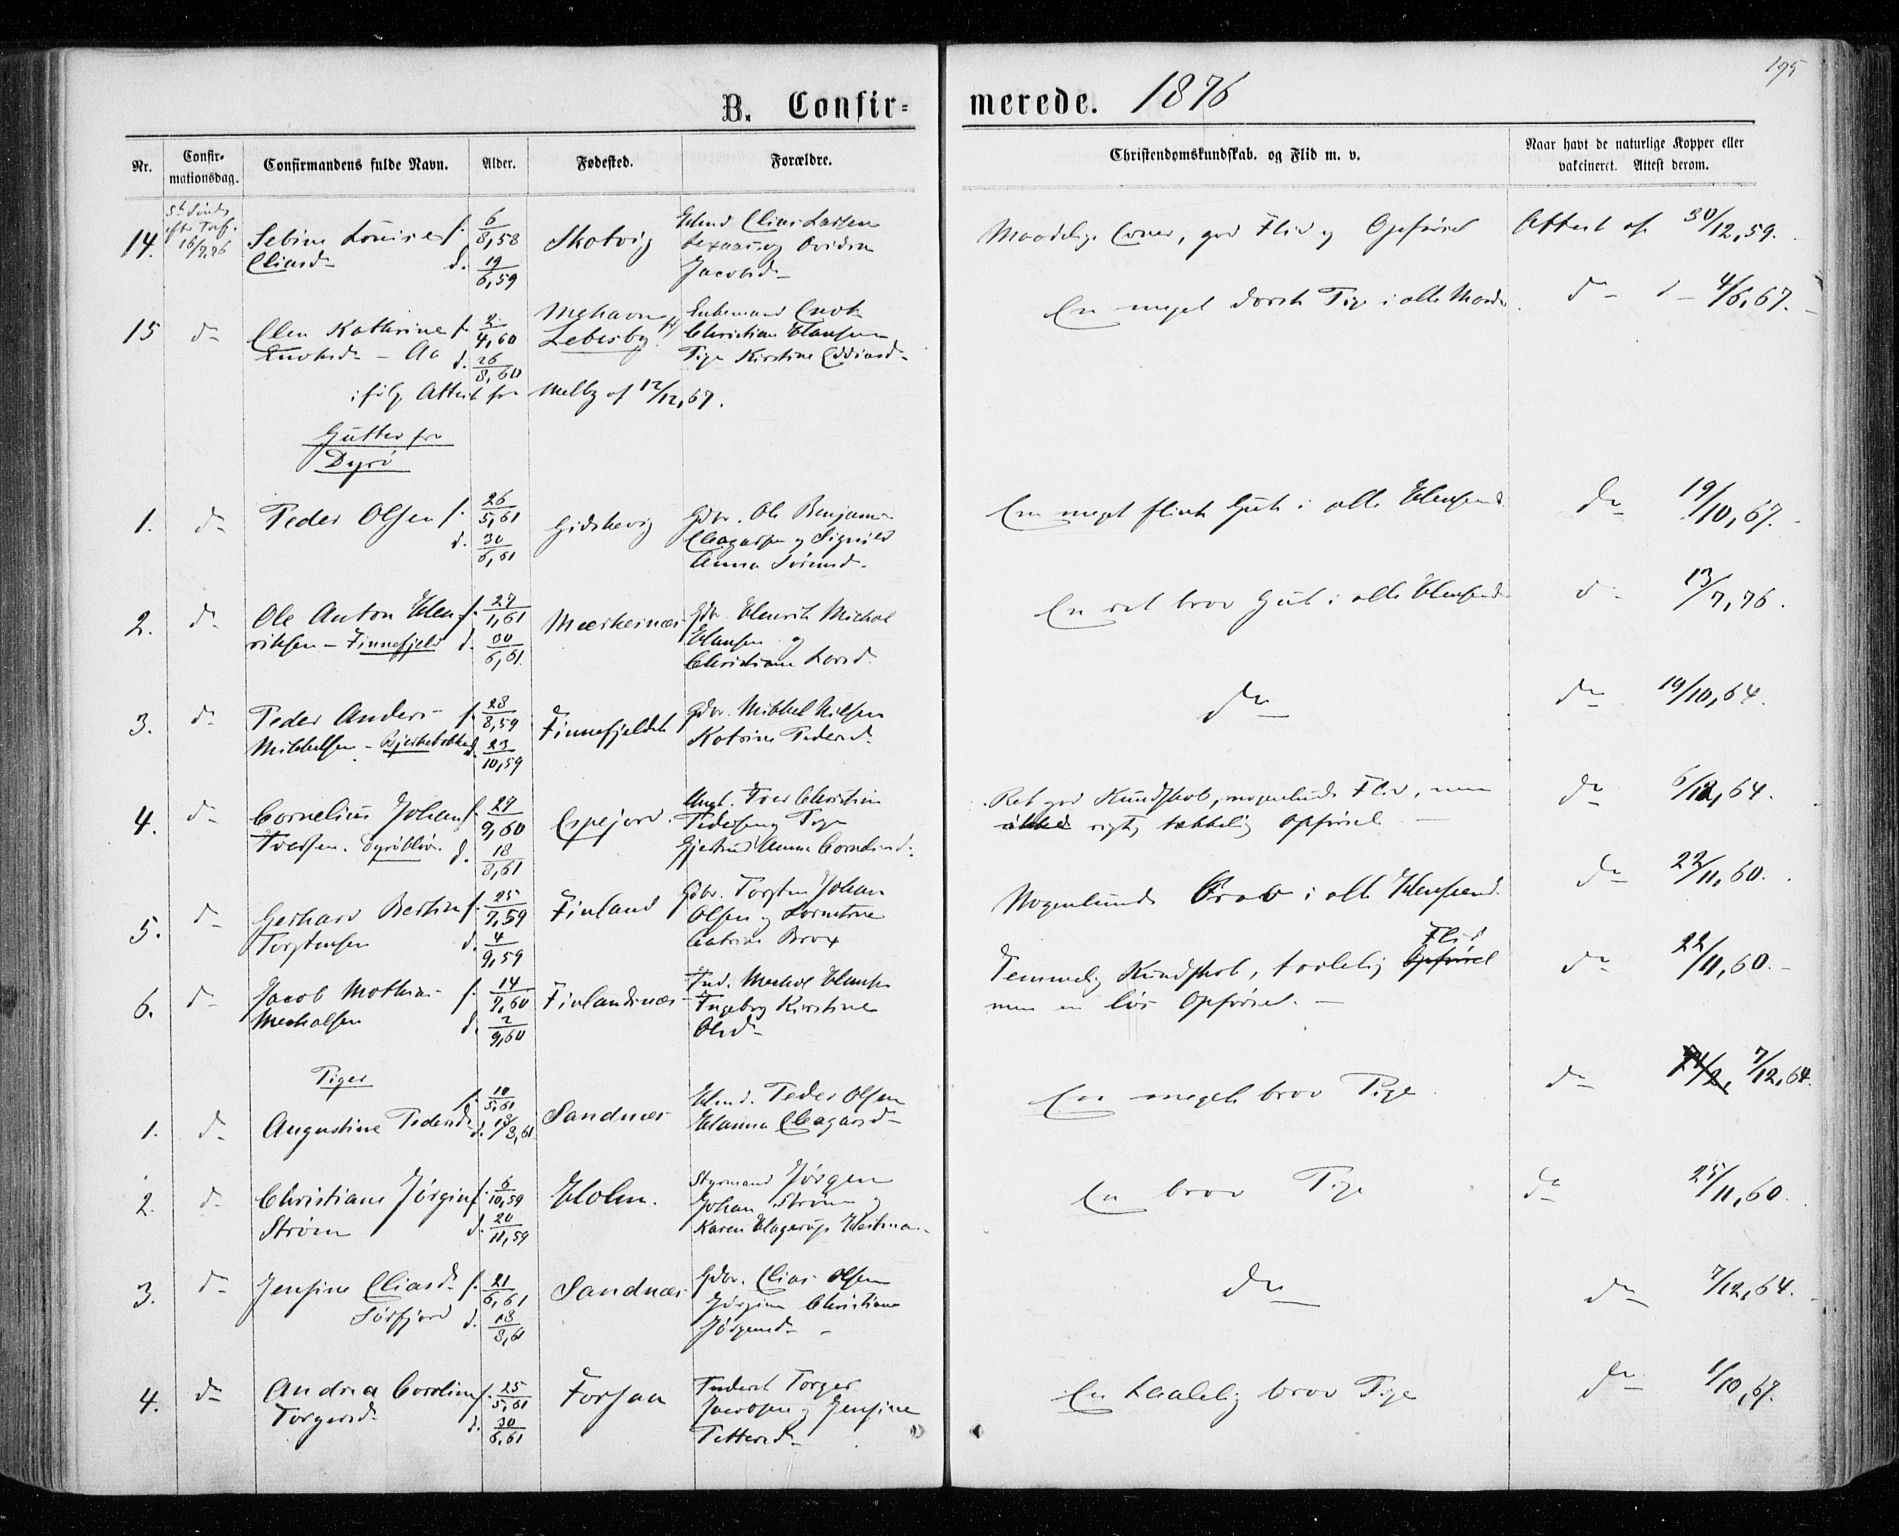 195
B. Confir-
merede. 1876
Nr.
Confir-
mationsdag.
Confirmandens fulde Navn.
Alder.
Fødested.
Forældre.
Christendomskundskab. og Flid m. v.
Naar havt de naturlige Kopper eller
vakcineret. Attest derom.
14.
5te Sönd.
efter Tref.
16/7,76
Sebine Louise
Eliasd.
f. 6/8,58
d. 19/6,59
Skotvig
Elias Larsen
og
Jacobsd.
Maadelige Evner, god Flid og Opførsel
Attest af 30/12,59.
15
do
Elen Kathrine
Enoksd. - Aa
f. 2/4,60
d. 26/8,60
Mehavn
Lebesby
Enkemand Enok
Christian Hansen
Pige Kirstine
En meget dorsk Pige i alle Maader
do d - 4/6,67.
ifølge Attest fra Melby af 12/12,67.
Gutter fra
Dyrö
1.
do
Peder Olsen
f. 26/5,61
d. 30/6,61
Gidskevig
Gdbr. Ole Benjamin
og Signild
Anna Sörensd.
En meget flink Gut i alle Henseender
do 19/10,67.
2.
do
Ole Anton Hen-
riksen - Finnefjeld
f. 27/1,61
d. 30/6,61
Mærkesnæs
Gdbr. Henrik Michal
Hansen og
Christiane Larsd.
En ret brav Gut i alle Henseender
do 13/7,76.
3.
do
Peder Anders
Mikkelsen - Bjerkebakke
f. 28/8,59
d. 23/10,59
Finnefjeldet
Gdbr. Mikkel Nilsen
Katrine Pedersd.
do
do 19/10,64.
4.
do
Cornelius Johan
Iversen.
f. 27/9,60
d. 18/8,61
Espejord
Ungk. Iver Christian
Pedersen og Pige
Gjertrud Anna Corneliusd.
Ret god Kundskab, nogenlunde Flid, men
ikke rigtig tækkelig Opførsel.
do 6/12,64.
5.
do
Gerhard Bertin
Torstensen
f. 25/7,59
d. 4/9,59
Finland
Gdbr. Torsten Johan
Olsen og
Catrine Brox
Nogenlunde Brav i alle Henseend.
do 22/11,60.
6.
do
Jacob Mathias
Meckalsen
f. 14/7,60
d. 2/9,60
Finlandsnæs
Ind. Meckal Hansen
Ingeborg Kirstine
Olsd.
Temmelig Kundskab, taalelig Opførsel Flid
men en løs Opførsel.
do 22/11,60.
Piger
1.
do
Augustine Pedersd.
f. 10/5,61
d. 18/8,61
Sandnæs
Hmd. Peder Olsen
Hanna
En meget brav Pige
do 7/12,64.
2.
do
Christiane Jørgine
Strøm
f. 6/10,59
d. 20/11,59
Holm.
Styrmand Jørgen
Johan Strøm og
Karen Hagerup Heitman
En brav Pige
do 25/11,60.
3.
do
Jensine Eliasd.
Sörfjord
f. 21/6,61
d. 18/8,61
Sandnæs
Gdbr. Elias Olsen
Jørgine Christiane
Jørgensd.
do
do 7/12,64.
4.
do
Andrea Caroline
Torgersd.
f. 25/5,61
d. 30/6,61
Forsaa
Inderst Torger
Jacobsen og Jensine
Pettersd.
En taalelig brav Pige
do 1/10,67.